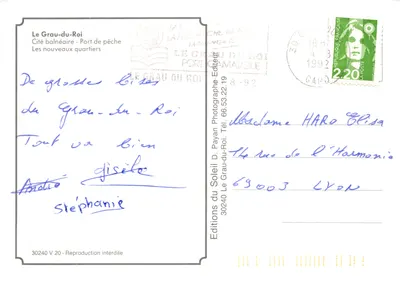 Le Grau-du-Roi
Cité balnéaire - Port de pêche
Les nouveaux quartiers
De grosses bises
du Grau-du-Roi
Tout va bien
André
Gisèle
Stéphanie
30240 V 20 - Reproduction interdite
Editions du Soleil D. Payan Photographe Editeur
30240 Le Grau-du-Roi. Tél. 66.53.22.19
LE GRAU DU ROI
PORT CAMARGUE
1992
2,20
Madame HARO Elisa
14 rue de l'Harmonie
69003 LYON